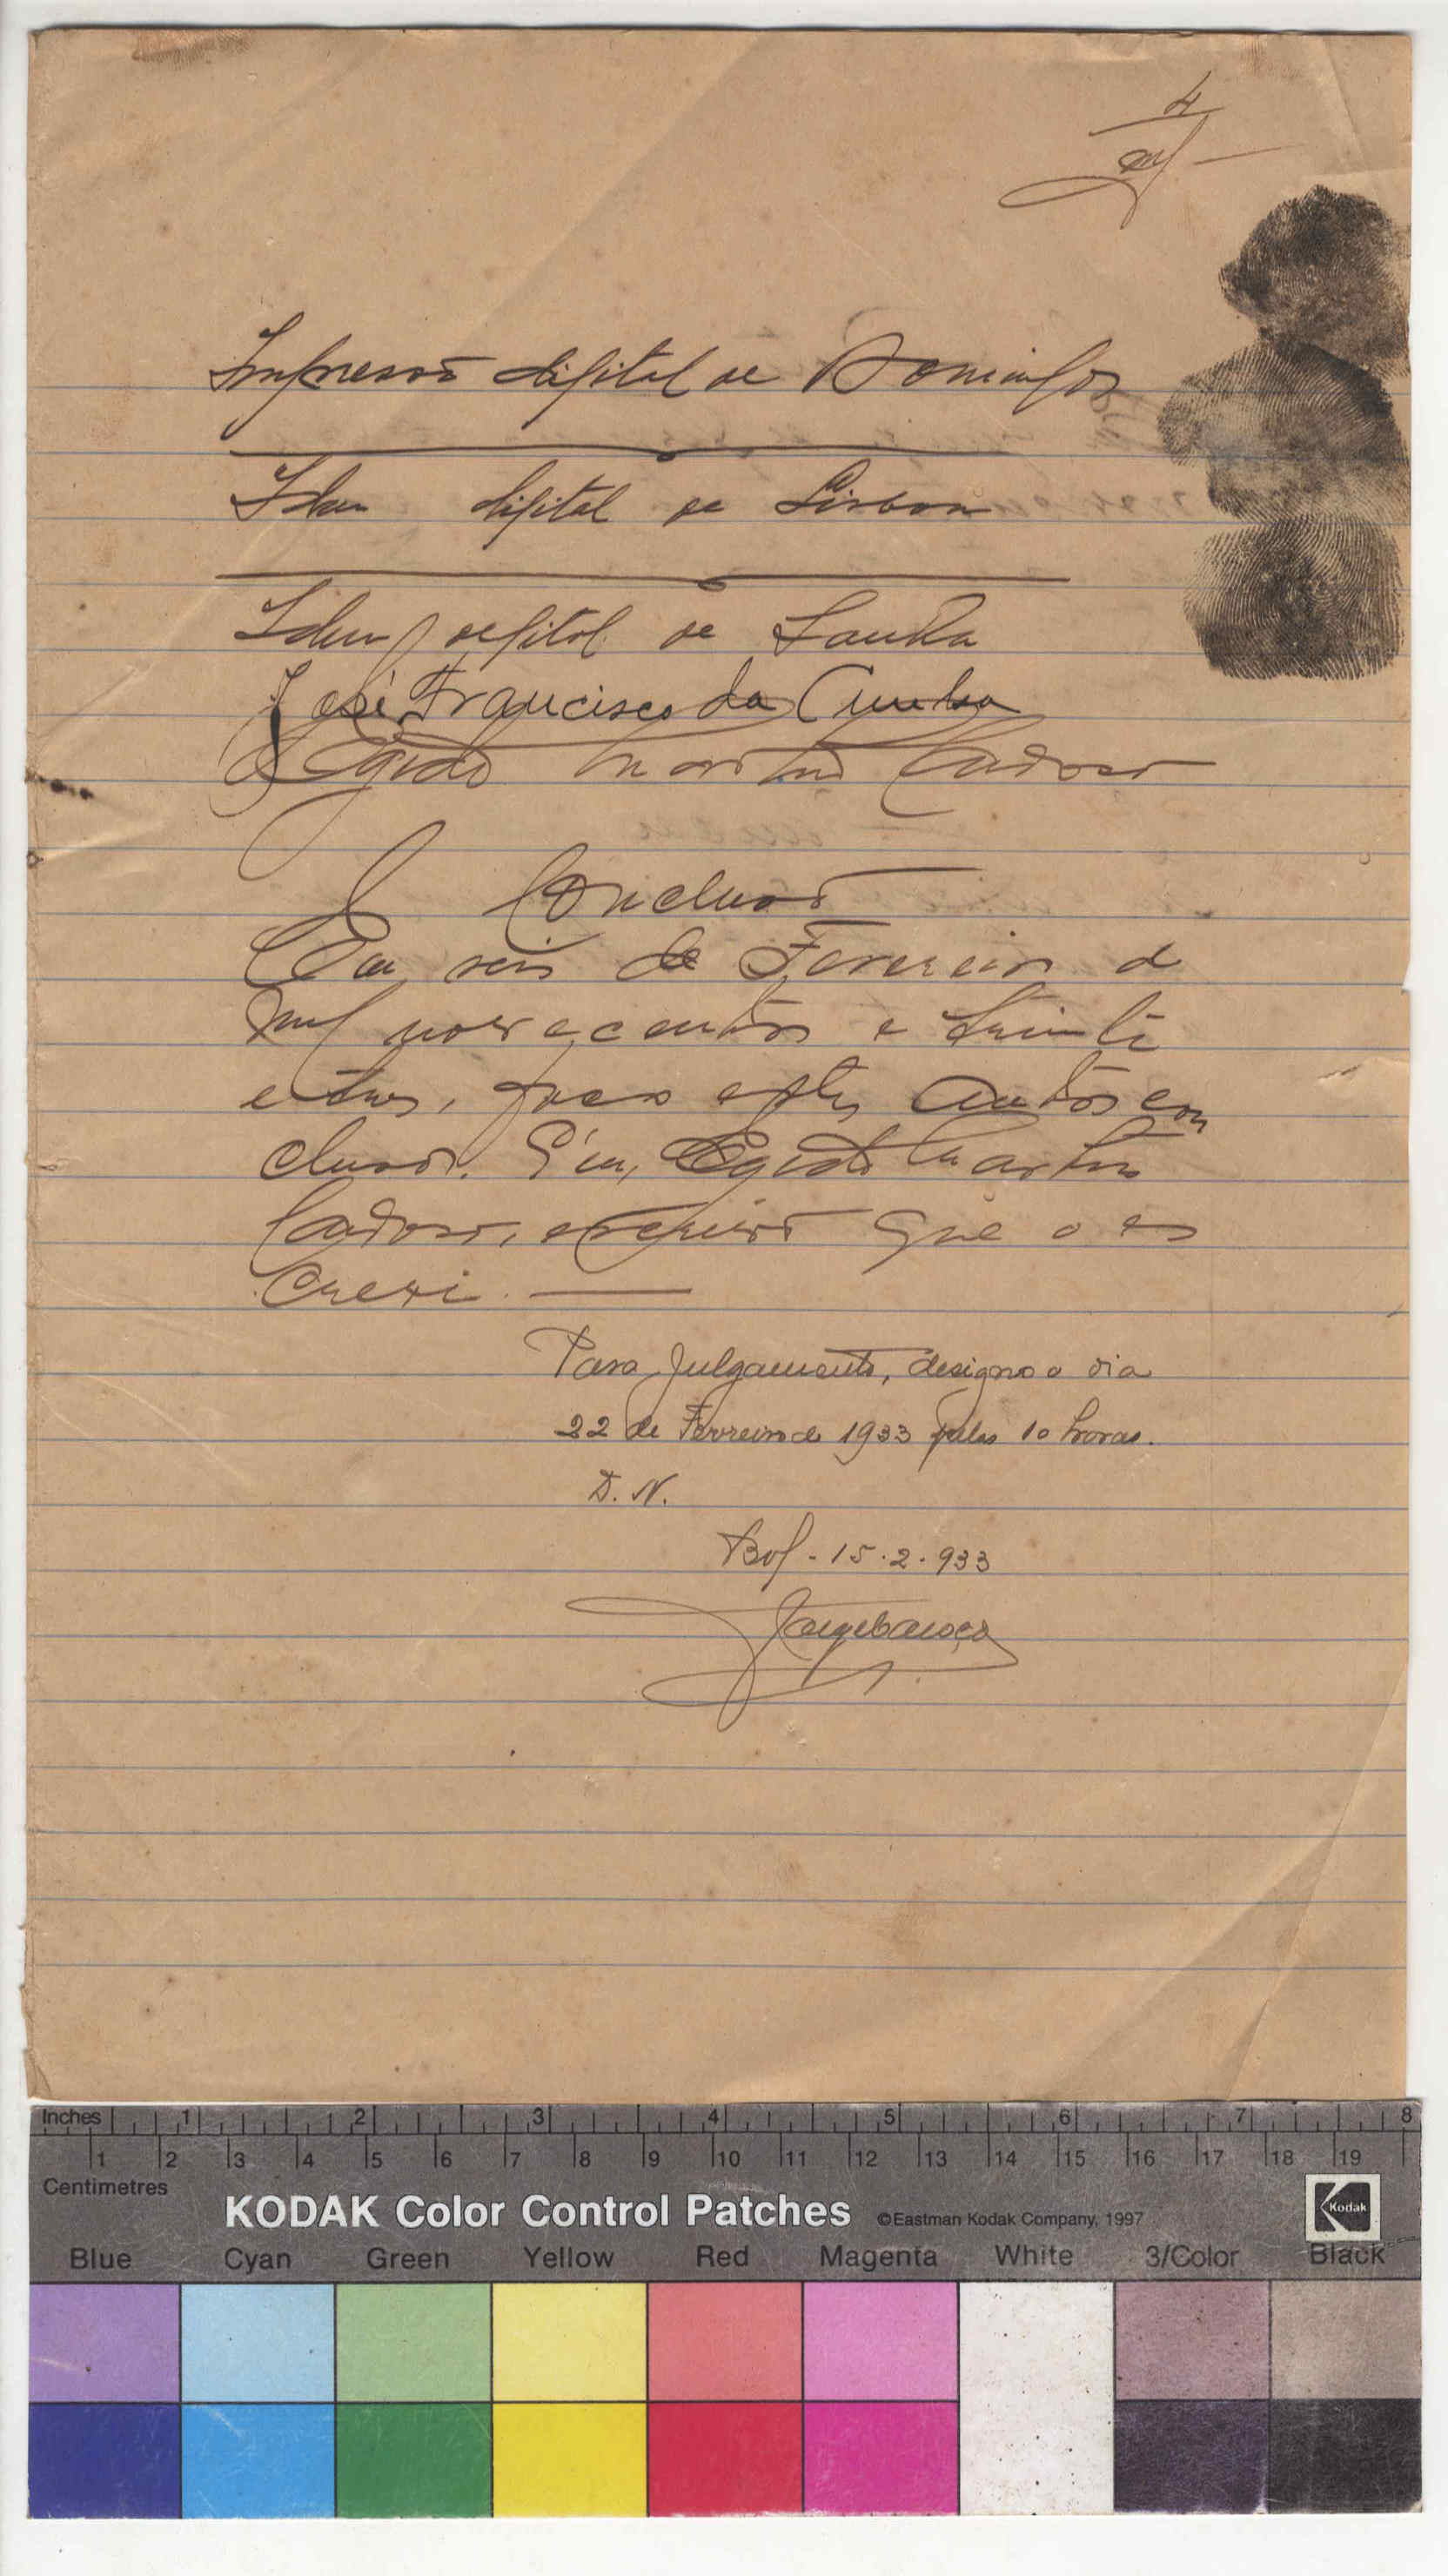 4
Impressão digital de Domingos
Idem digital de Lisboa
Idem digital de
José Francisco da Cunha
Egidio Martins Cardoso
Conclusão
Em seis de Fevereiro de
mil novecentos e trinta
e tres, faço estes autos con
clusos. Eu, Egidio Martins
Cardoso, escrivão que o es
crevi.
Para julgamento, designo o dia
22 de Fevreiro de 1933 pelas 10 horas.
D. N.
Bol. 15.2.933
Inches 1 2 3 4 5 6 7 8
1 2 3 4 5 6 7 8 9 10 11 12 13 14 15 16 17 18 19
Centimetres
KODAK Color Control Patches ©Eastman Kodak Company, 1997 Kodak
Blue Cyan Green Yellow Red Magenta White 3/Color Black